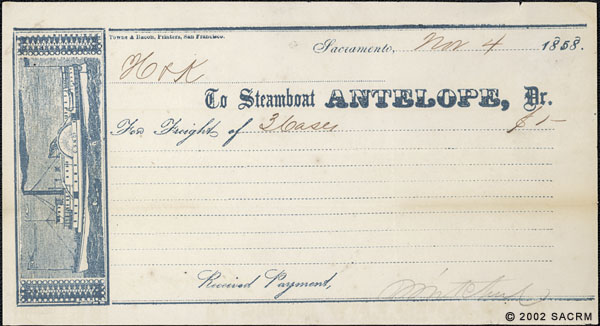 Towne & Bacon, Printers, San Francisco.
Sacramento, Nov 4 1858.
H & K
To Steamboat ANTELOPE, Dr.
For Freight of 3 Cases $1–
Received Payment,
© 2002 SACRM